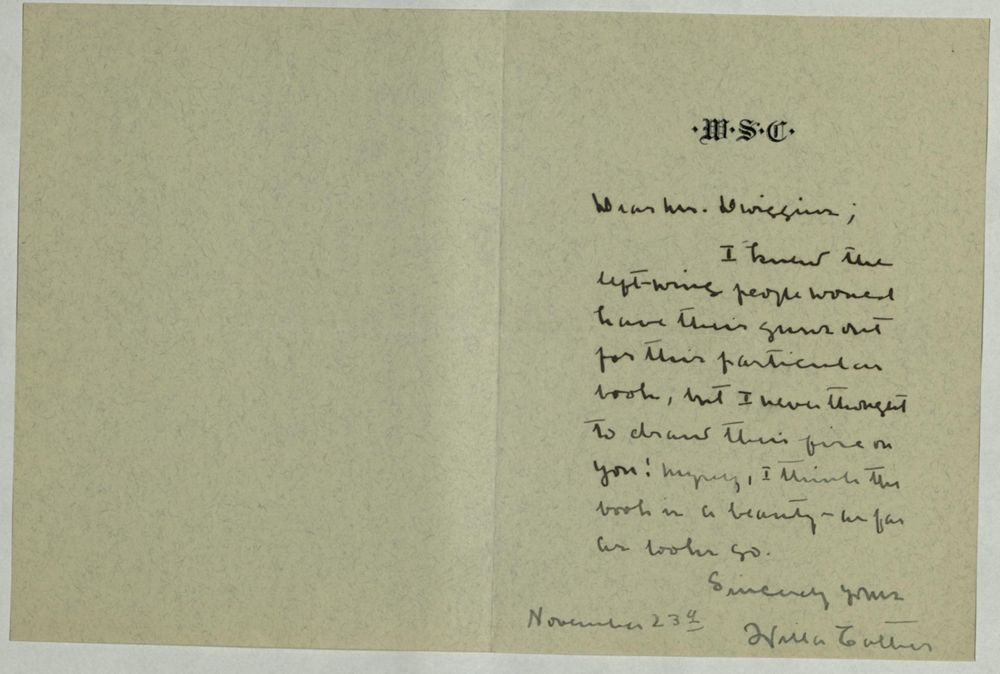 ·W·S·C·
Dear Mr. Dwiggins;
I knew the
left-wing people would
have their guns out
for this particular
book, but I never thought
to draw their fire on
you! Myself, I think the
book is a beauty - as far
as looks go.
Sincerely yours
Willa Cather
November 23d